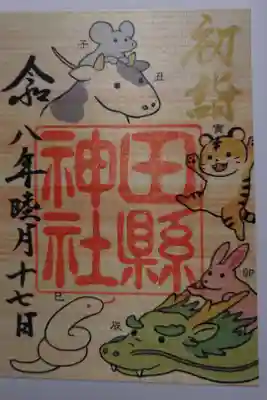 初詣
子
丑
寅
卯
辰
巳
田縣
神社
令和
八年睦月十七日